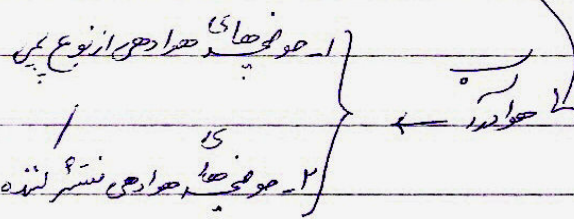 ۱ـ حوضچه‌های هوادهی از نوع پمپی
هوا در آب ←
۲ـ حوضچه‌های هوادهی منتشر کننده